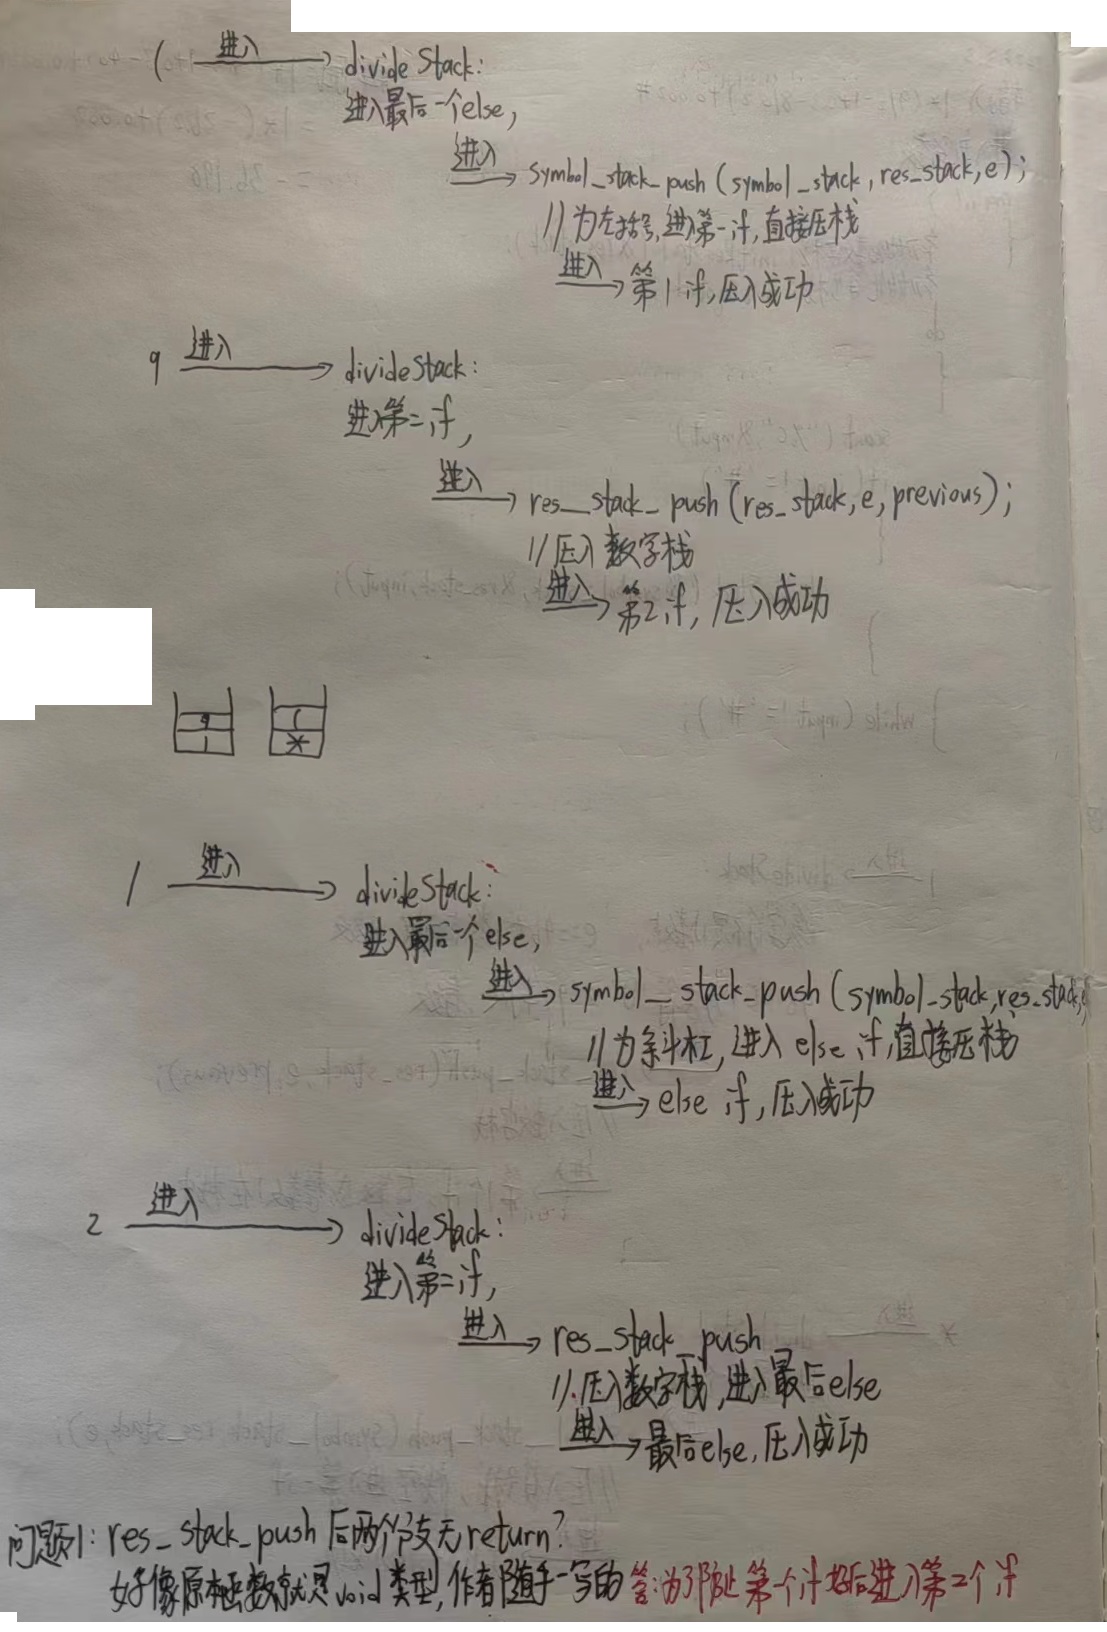 ( 进入 divideStack:
进入最后一个else,
进入 symbol_stack_push (symbol_stack, res_stack, e);
//为左括号,进入第一if,直接压栈
进入 第1if,压入成功
9 进入 divideStack:
进入第二if,
进入 res_stack_push (res_stack, e, previous);
//压入数字栈
进入 第2if, 压入成功
9 (
1 *
/ 进入 divideStack:
进入最后一个else,
进入 symbol_stack_push (symbol_stack, res_stack,e
//为斜杠,进入else if,直接压栈
进入 else if,压入成功
2 进入 divideStack:
进入第二if,
进入 res_stack_push
//压入数字栈,进入最后else
进入 最后else,压入成功
问题1: res_stack_push 后两个阶段无return?
好像原本函数就是void类型,作者随手一写的 答:为了防止第一个if 后进入第2个if